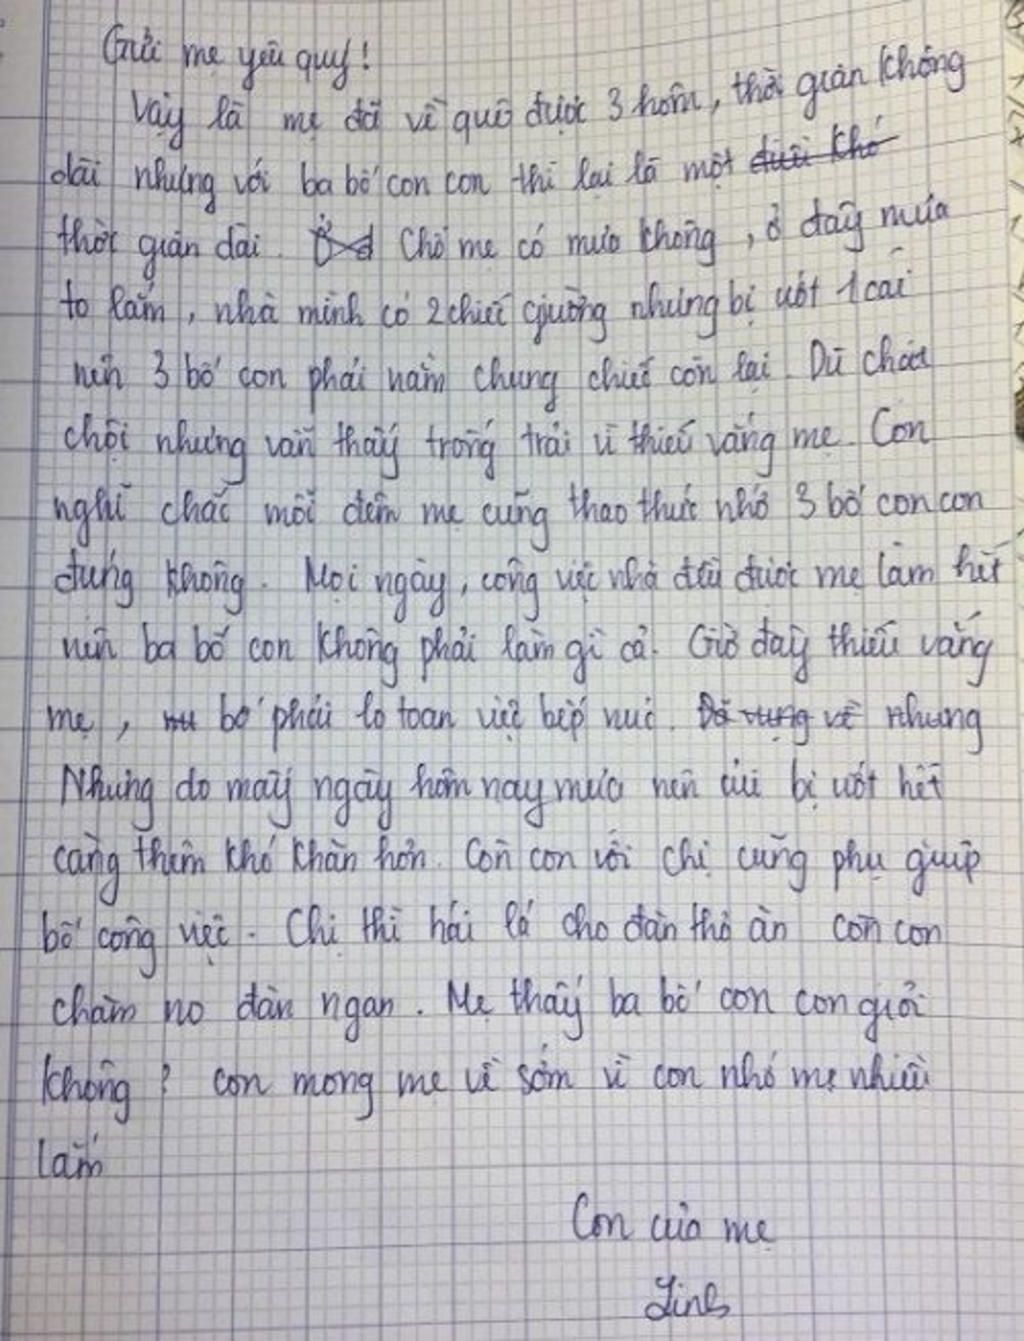 Gửi mẹ yêu quý!
Vậy là mẹ đã về quê được 3 hôm, thời gian không
dài nhưng với ba bố con con thì lại là một
thời gian dài. Chỗ mẹ có mưa không, ở đây mưa
to lắm, nhà mình có 2 chiếc giường nhưng bị ướt 1 cái
nên 3 bố con phải nằm chung chiếc còn lại. Dù chật
chội nhưng vẫn thấy trống trải vì thiếu vắng mẹ. Con
nghĩ chắc mỗi đêm mẹ cũng thao thức nhớ 3 bố con con
đúng không. Mọi ngày, công việc nhà đều được mẹ làm hết
nên ba bố con không phải làm gì cả. Giờ đây thiếu vắng
mẹ, bố phải lo toan việc bếp núc. nhưng
Nhưng do mấy ngày hôm nay mưa nên củi bị ướt hết
càng thêm khó khăn hơn. Còn con với chị cũng phụ giúp
bố công việc. Chị thì hái lá cho đàn thỏ ăn còn con
chăm no đàn ngan. Mẹ thấy ba bố con con giỏi
không? con mong mẹ về sớm vì con nhớ mẹ nhiều
lắm
Con của mẹ
Linh